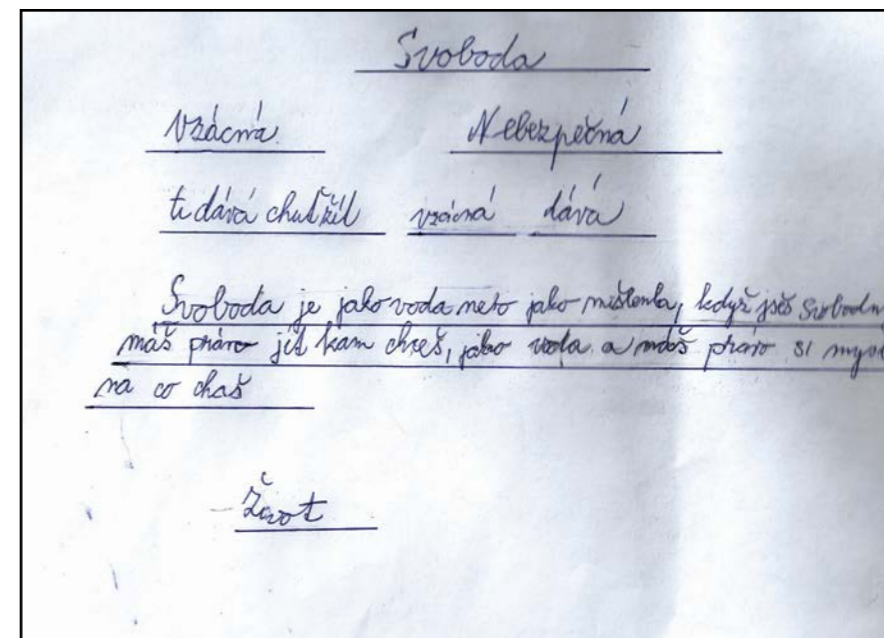 Svoboda
Vzácná Nebezpečná
ti dává chuť žít vzácná dává
Svoboda je jako voda nebo jako myšlenka, když jseš svobodn
máš právo jít kam chceš, jako voda a máš právo si mysl
na co chceš
Život